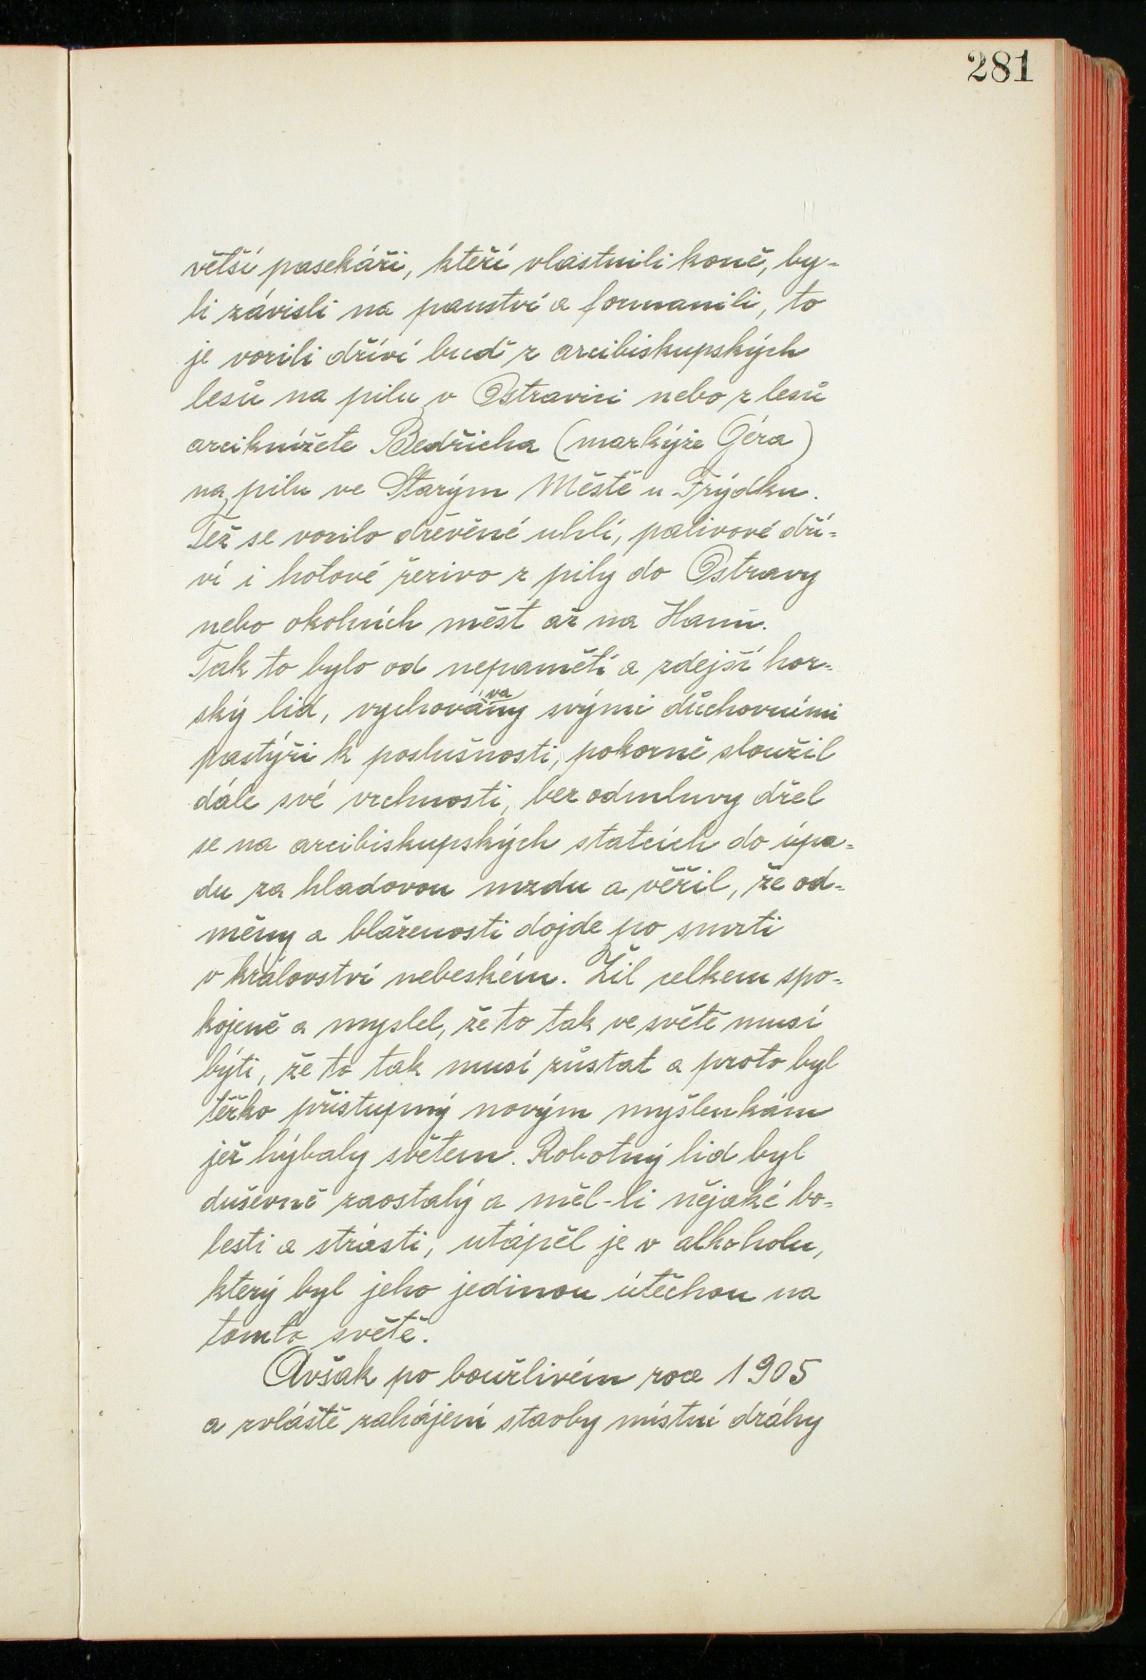 281
větší pasekáři, kteří vlastnili koně, by-
li závisli na panství a formanili, to
je vozili dříví buď z arcibiskupských
lesů na pilu v Ostravici nebo z lesů
arciknížete Bedřicha (markýze Géra)
na pilu ve Starým Městě u Frýdku.
Též se vozilo dřevěné uhlí, palivové dří-
ví i hotové řezivo z pily do Ostravy
nebo okolních měst až na Hanú.
Tak to bylo od nepaměti a zdejší hor-
ský lid, vychovávaný svými duchovními
pastýři k poslušnosti, pokorně sloužil
dále své vrchnosti, bez odmluvy dřel
se na arcibiskupských statcích do úpa-
du za hladovou mzdu a věřil, že od-
měny a blaženosti dojde po smrti
v království nebeském. Žil celkem spo-
kojeně a myslel, že to tak ve světě musí
býti, že to tak musí zůstat a proto byl
těžko přístupný novým myšlenkám
jež hýbaly světem. Robotný lid byl
duševně zaostalý a měl-li nějaké bo-
lesti a strasti, utápěl je v alkoholu,
který byl jeho jedinou útěchou na
tomto světě.
Avšak po bouřlivém roce 1905
a zvláště zahájení stavby místní dráhy